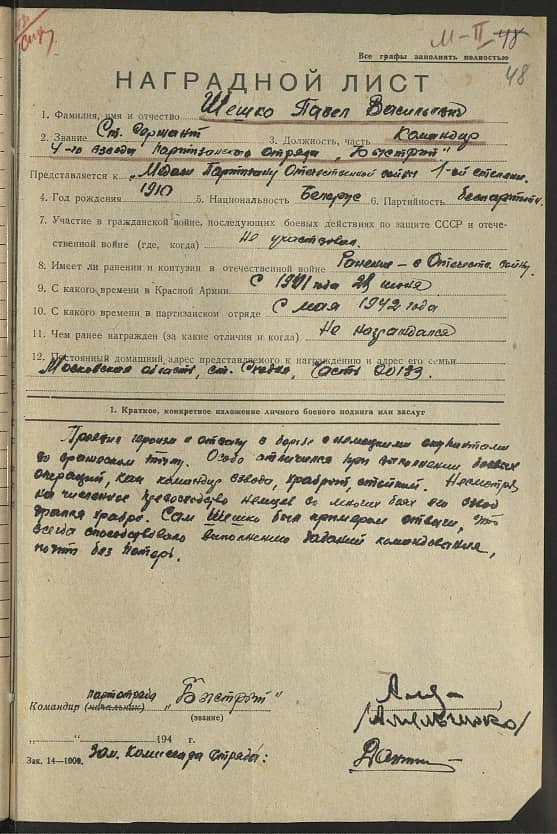 М-II 48
Все графы заполнять полностью
48
НАГРАДНОЙ ЛИСТ
1. Фамилия, имя и отчество Шешко Павел Васильевич
2. Звание Ст. Сержант 3. Должность, часть Командир
4-го взвода Партизанского отряда „Быстрый"
Представляется к „Медали Партизану Отечественной войны 1-ой степени.
4. Год рождения 1910 5. Национальность Беларус 6. Партийность беспартийн.
7. Участие в гражданской войне, последующих боевых действиях по защите СССР и отече-
ственной войне (где, когда) Не участвовал.
8. Имеет ли ранения и контузии в отечественной войне Ранение – в Отечеств. войну.
9. С какого времени в Красной Армии С 1941 года 28 июня
10. С какого времени в партизанском отряде С мая 1942 года
11. Чем ранее награжден (за какие отличия и когда) Не награждался
12. Постоянный домашний адрес представляемого к награждению и адрес его семьи
Московская область, ст. Часть 20133.
1. Краткое, конкретное изложение личного боевого подвига или заслуг
Проявил героизм и отвагу в борьбе с немецкими окупантами
во вражеском тылу. Особо отличился при выполнении боевых
операций, как командир взвода, храбрый, стойкий. Несмотря
на численное превосходство немцев во многих боях его взвод
дрался храбро. Сам Шешко был примером отваги, что
всегда способствовало выполнению заданий командования,
почти без потерь.
Командир (начальник) партотряда „Быстрый"
(звание)
/Амельченко/
„ " 194 г.
Зам. Комиссара отряда:
Зак. 14—1000.